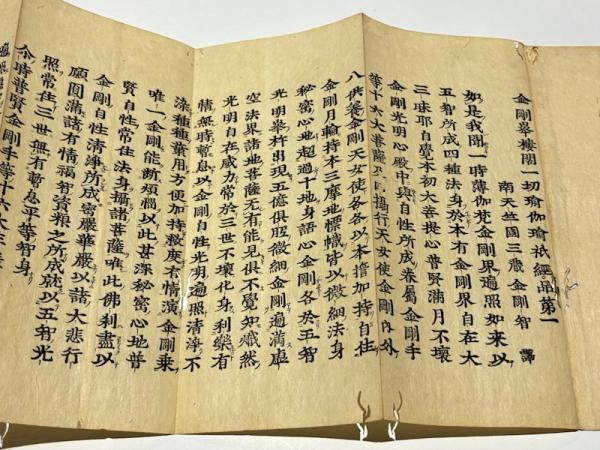 金剛峯樓閣一切瑜伽瑜祇經品第一
南天竺國三藏金剛智 譯
如是我聞一時薄伽梵金剛界遍照如來以
五智所成四種法身於本有金剛界自在大
三昧耶自覺本初大菩提心普賢滿月不壞
金剛光明心殿中與自性所成眷屬金剛手
等十六大菩薩及四攝行天女使金剛內外
八供養金剛天女使各各以本誓加持自住
金剛月輪持本三摩地幖幟皆以微細法身
秘密心地超過十地身語心金剛各於五智
光明峯杵出現五億俱胝微細金剛遍滿虛
空法界諸地菩薩無有能見俱不覺知熾然
光明自在威力常於三世不壞化身利樂有
情無時暫息以金剛自性光明遍照清淨不
染種種業用方便加持救度有情演金剛乘
唯一金剛能斷煩惱以此甚深秘密心地普
賢自性常住法身攝諸菩薩唯此佛刹盡以
金剛自性清淨所成密嚴華嚴以諸大悲行
願圓滿諸有情福智資糧之所成就以五智光
照常住三世無有暫息平等智身
尒時普賢金剛手等十六大